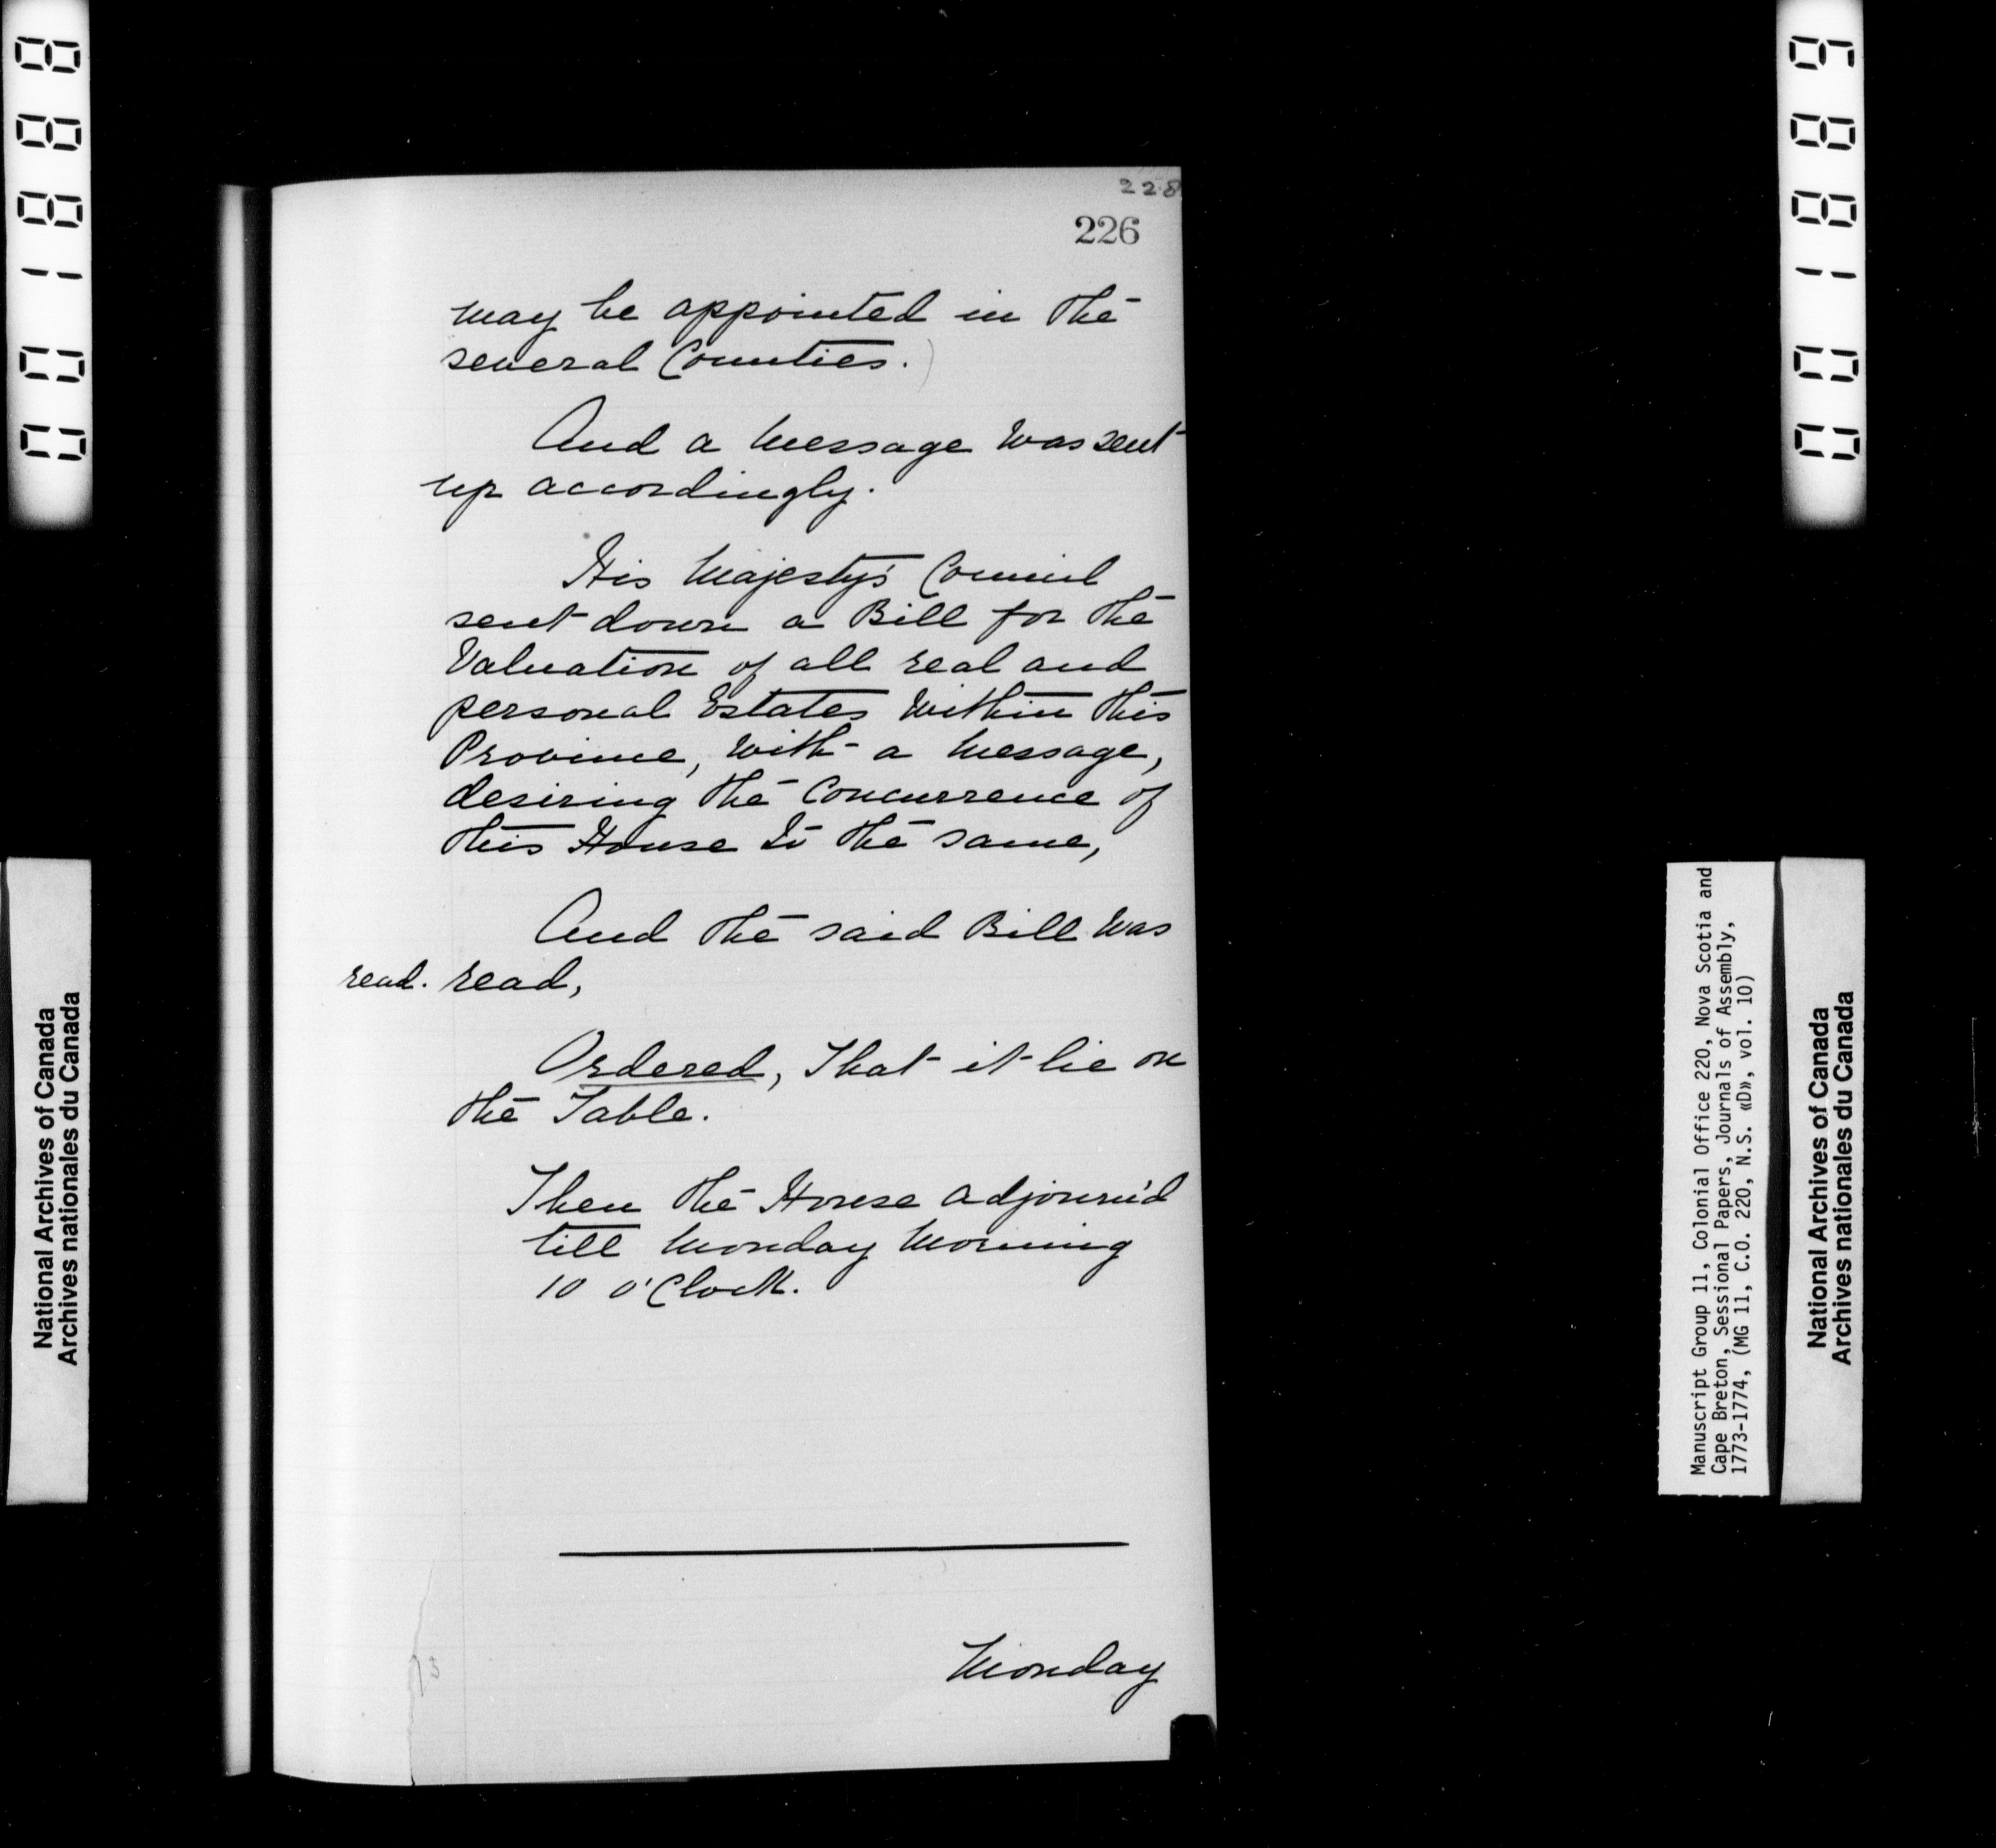 001888
001889
228
226
may be appointed in the
several Counties.)
And a Message was sent
up accordingly.
His Majesty's Council
sent down a Bill for the
Valuation of all real and
personal Estates within this
Province, with a Message,
desiring the Concurrence of
this House to the same,
And the said Bill was
read. read,
Ordered, That it lie on
the Table.
Then the House adjourn'd
till Monday Morning
10 o'Clock.
Monday
National Archives of Canada
Archives nationales du Canada
Manuscript Group 11, Colonial Office 220, Nova Scotia and
Cape Breton, Sessional Papers, Journals of Assembly,
1773-1774, (MG 11, C.O. 220, N.S. «D», vol. 10)
National Archives of Canada
Archives nationales du Canada